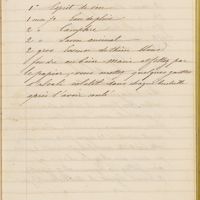 1° Esprit de vin
1 once ½ Eau de pluie
2 " Camphre
2 " Savon animal
2 gros Savon de thèse blanc
fondre au bain marie et filtrez par
le papier, vous mettez quelques gouttes
d'alcali volatil dans chaque bouteille
après l'avoir coulé